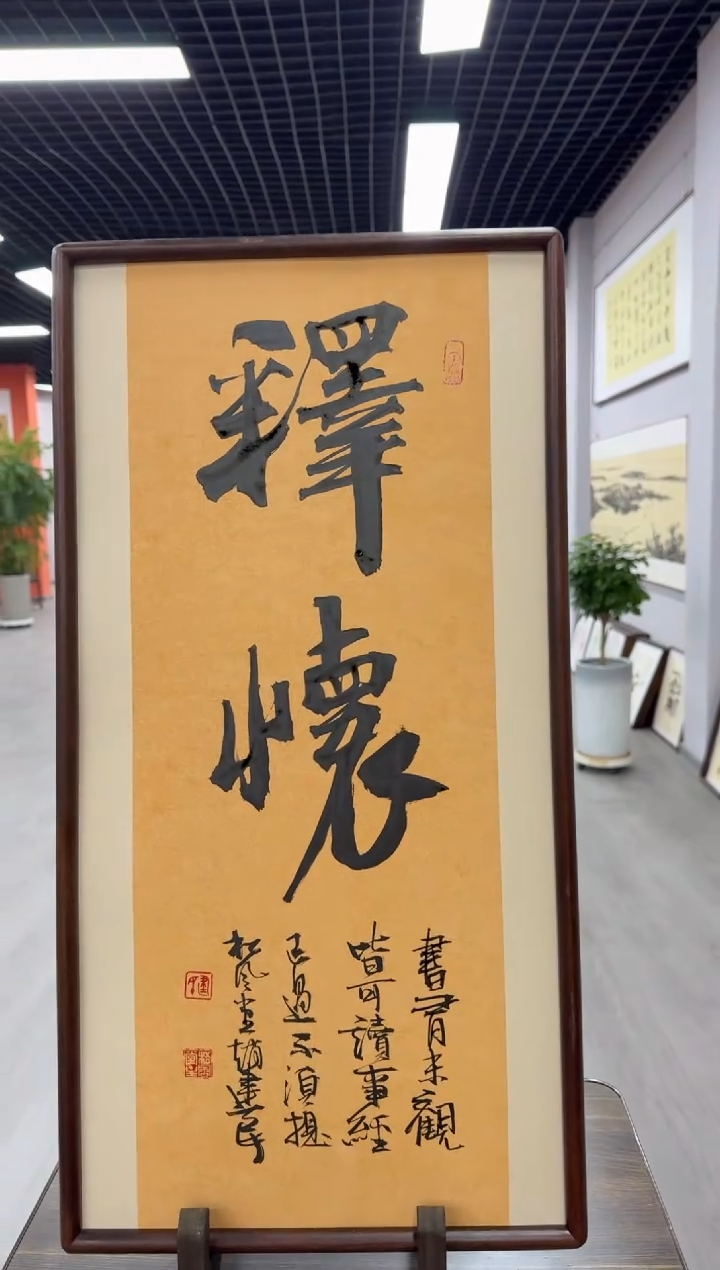 釋
懷
書有未觀
皆可讀事經
已過不須提
松風堂趙建民